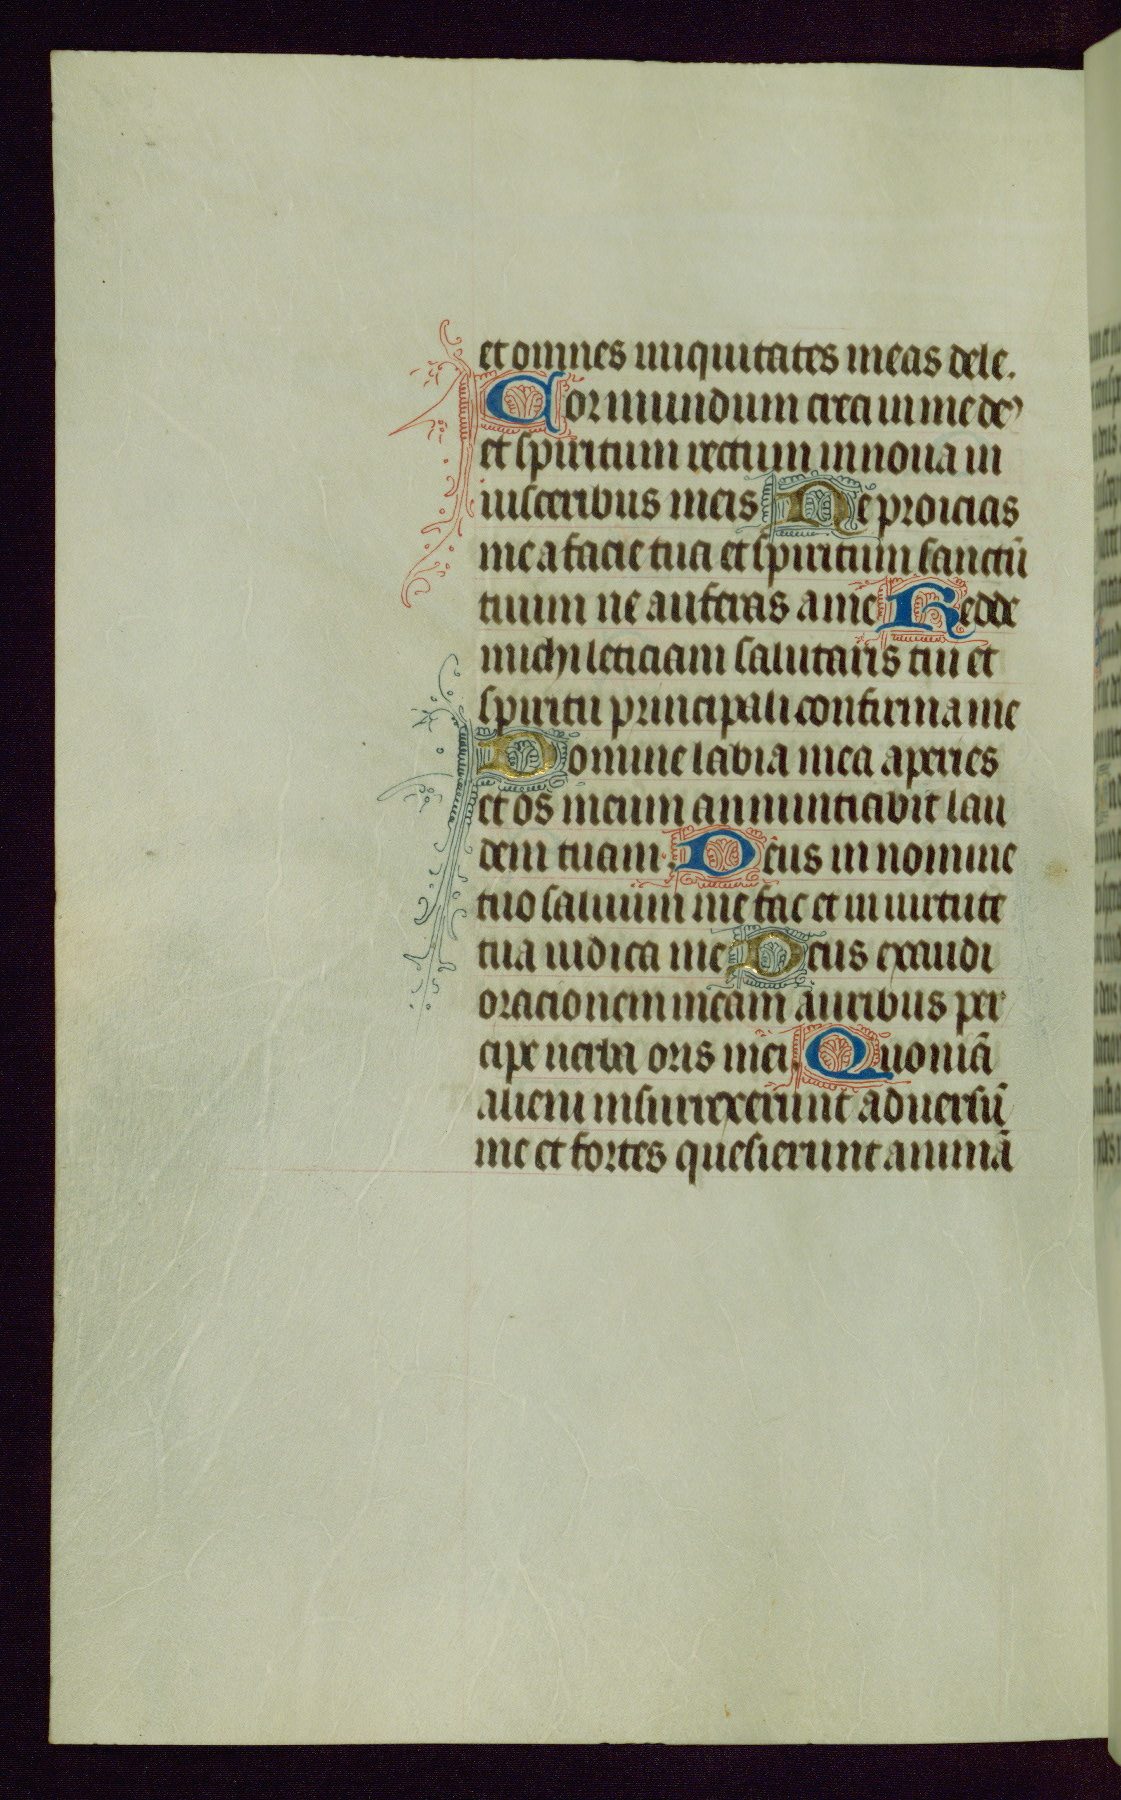 et omnes iniquitates meas dele.
Cor mundum crea in me de
et spiritum rectum innoua in
uisceribus meis Ne proicias
me a facie tua et spiritum sanctū
tuum ne auferas a me Redde
michi leticiam salutaris tui et
spiritu principali confirma me
Domine labia mea aperies
et os meum annunciabit lau
dem tuam. Deus in nomine
tuo saluum me fac et in uirtute
tua iudica me Deus exaudi
oracionem meam auribus per
cipe uerba oris mei. Quoniā
alieni insurrexerunt aduersū
me et fortes quesierunt animā